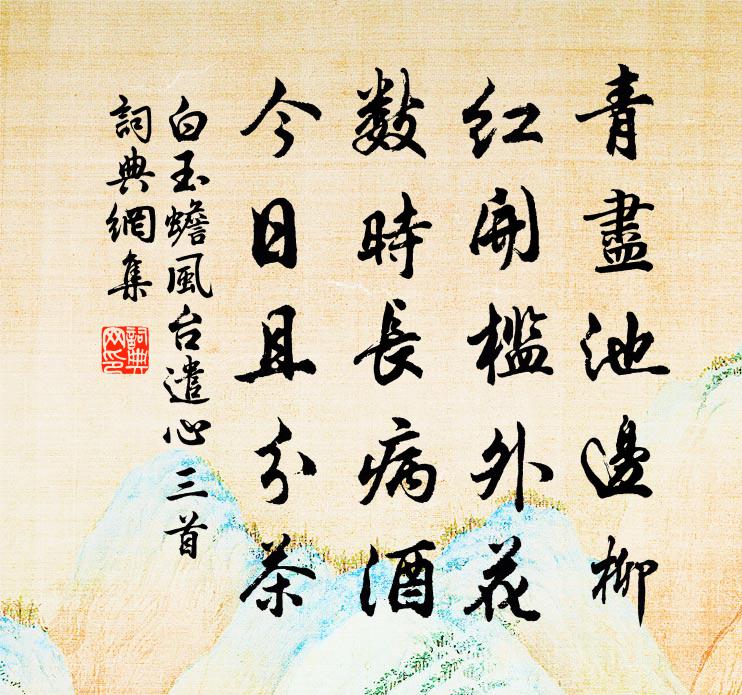 青盡池邊柳
紅開檻外花
數時長病酒
今日且分茶
白玉蟾風台遣心三首
詞典網集
詞典
网印